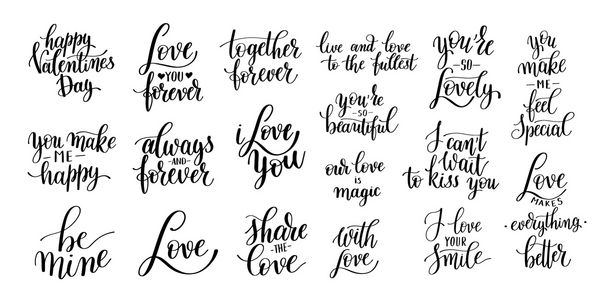 happy
Valentines
Day
Love
YOU
forever
together
forever
live and love
to the fullest
you're
SO
Lovely
you
make
ME
feel
Special
you make
ME
happy
always
AND
forever
i Love
You
you're
SO
beautiful
our love
is
magic
I can't
Wait
to kiss you
Love
MAKES
everything
better
be
mine
Love
share
THE
Love
with
Love
I love
YOUR
Smile